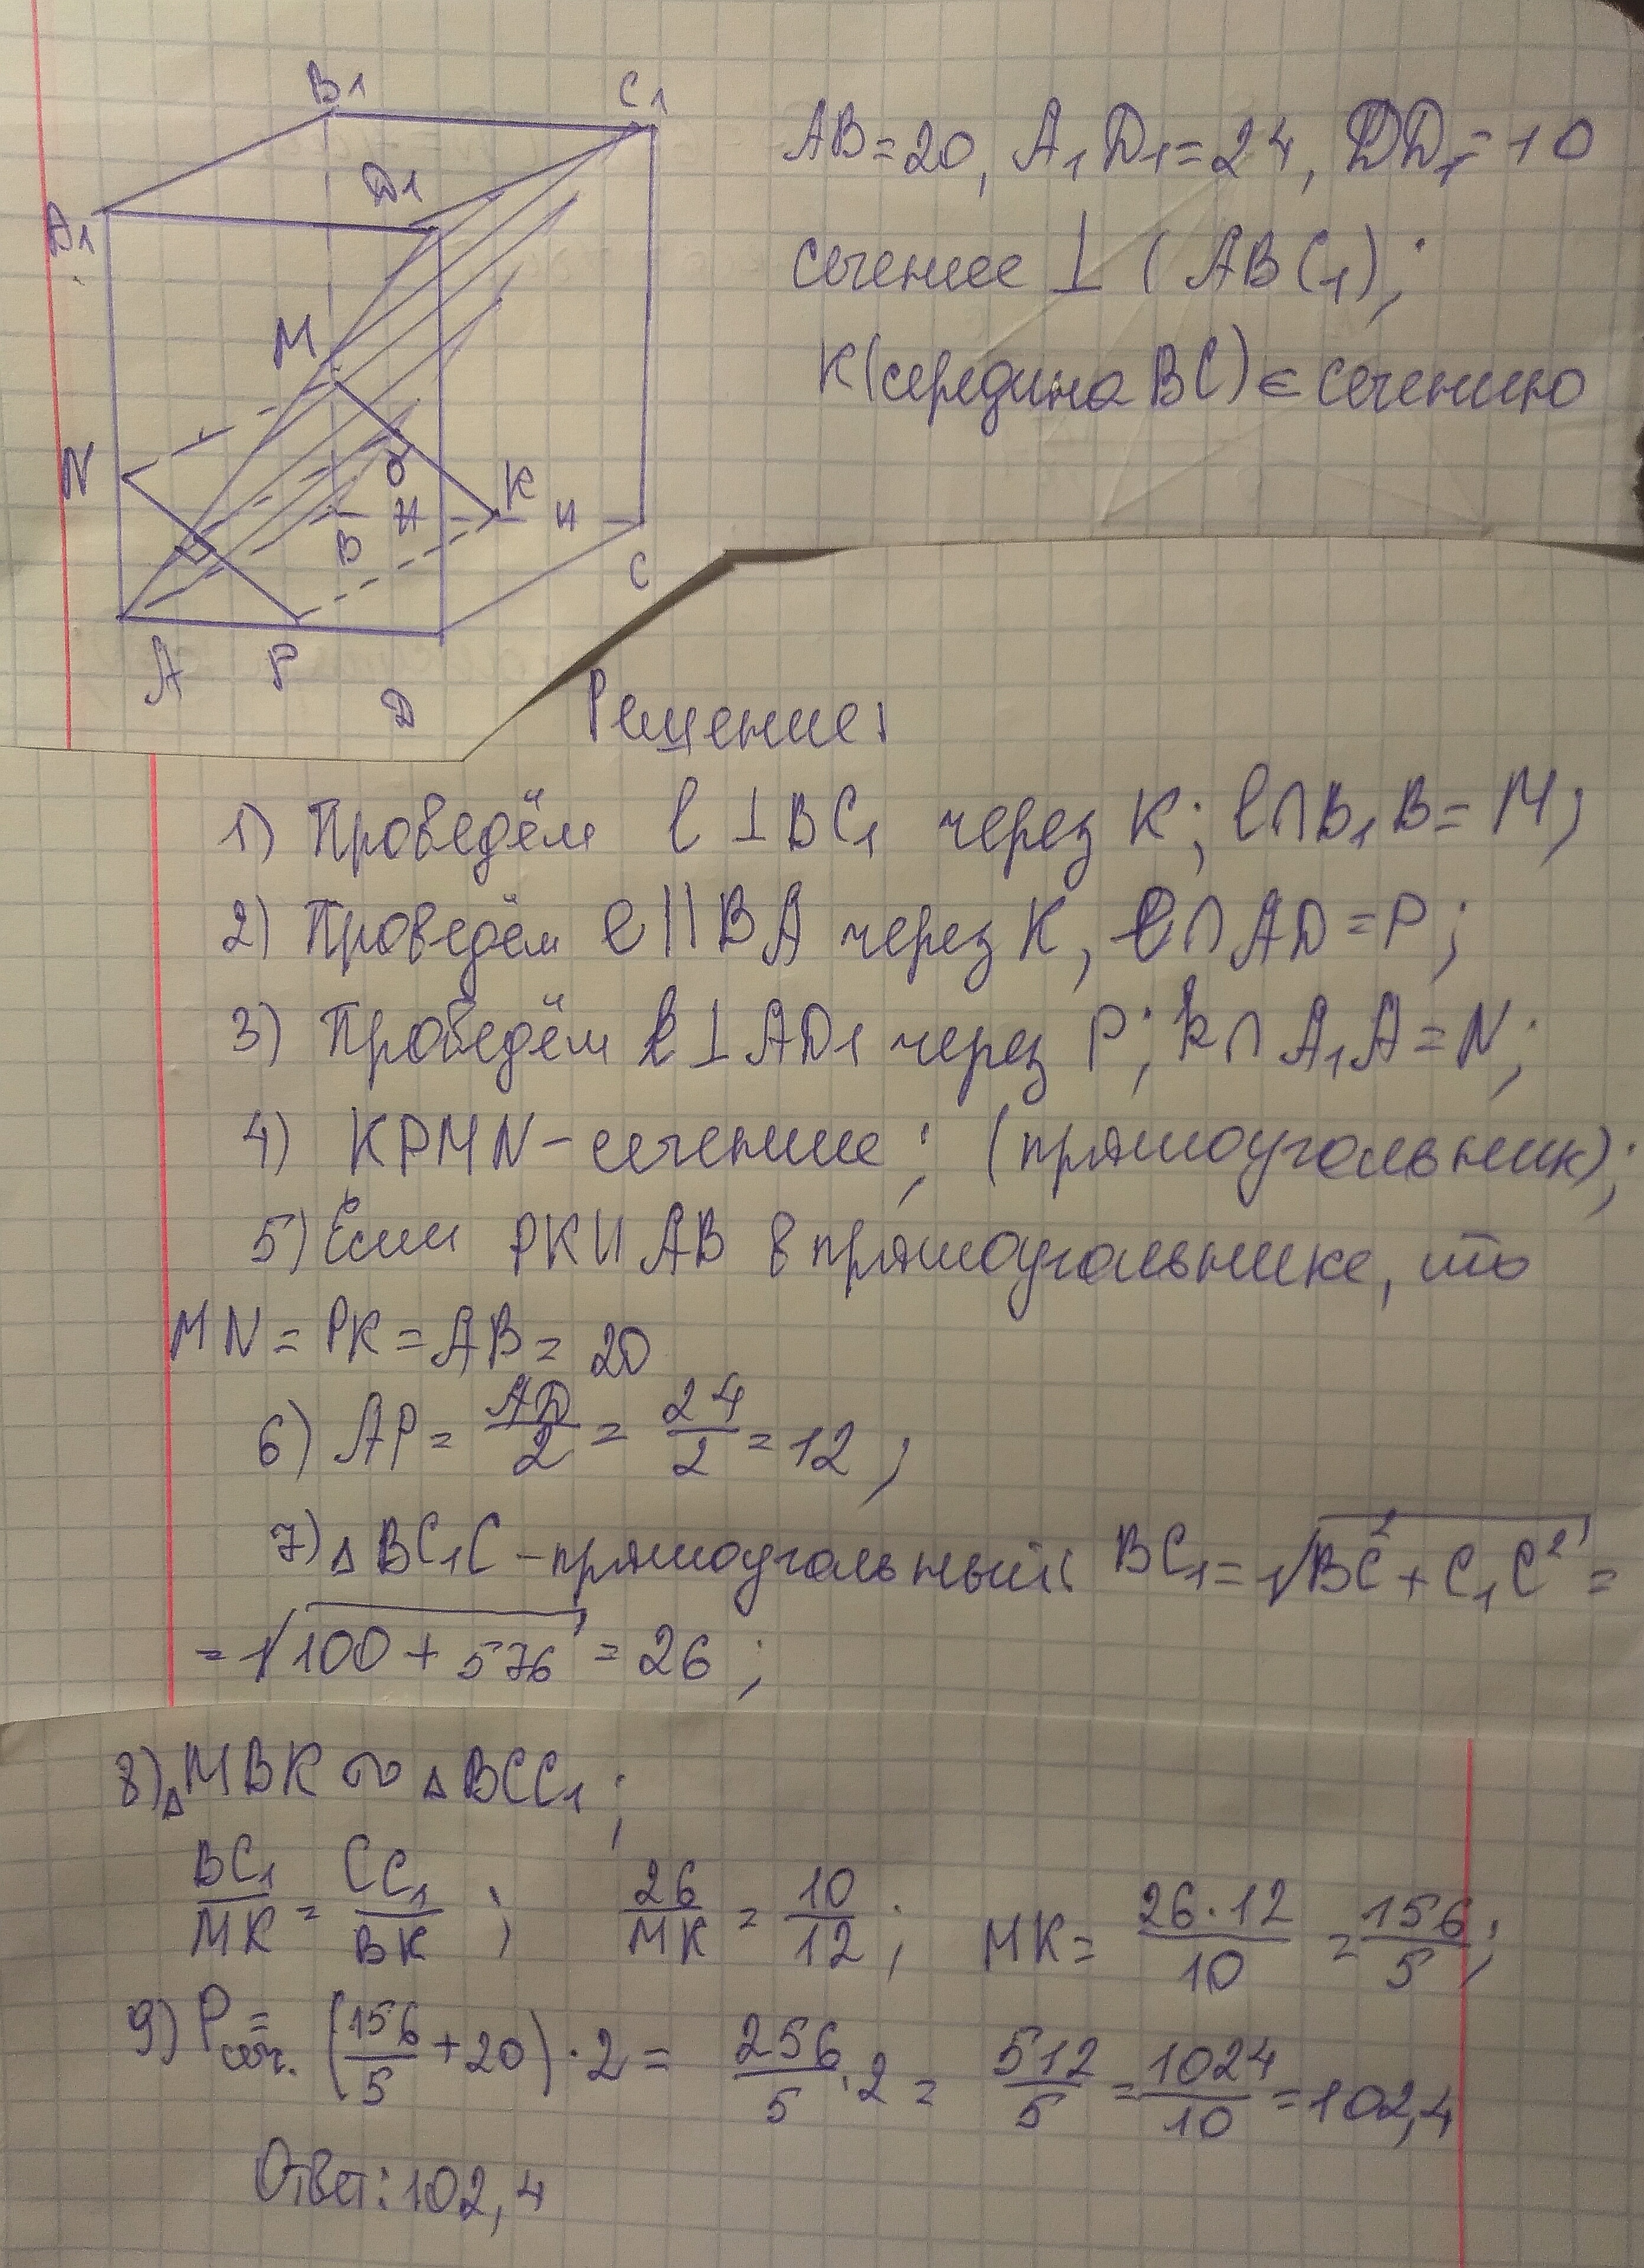 B1
C1
D1
A1
M
N
O
K
B
C
A
P
D
AB=20, A1D1=24, DD1=10
сечение ⊥ (ABC1);
K(середина BC) ∈ сечению
Решение:
1) Проведём l ⊥ BC1 через K; l∩B1B = M;
2) Проведём e || BA через K, e∩AD = P;
3) Проведём k ⊥ AD1 через P; k∩A1A = N;
4) KPMN – сечение; (прямоугольник);
5) Если PK || AB в прямоугольнике, то
MN = PK = AB = 20
6) AP = AD/2 = 24/2 = 12;
7) △BC1C – прямоугольный: BC1 = √(BC² + C1C²) =
= √(100 + 576) = 26;
8) △MBK ∾ △BCC1;
BC1/MK = CC1/BK; 26/MK = 10/12; MK = 26·12/10 = 156/5;
9) Pсеч. = (156/5 + 20)·2 = 256/5·2 = 512/5 = 1024/10 = 102,4
Ответ: 102,4